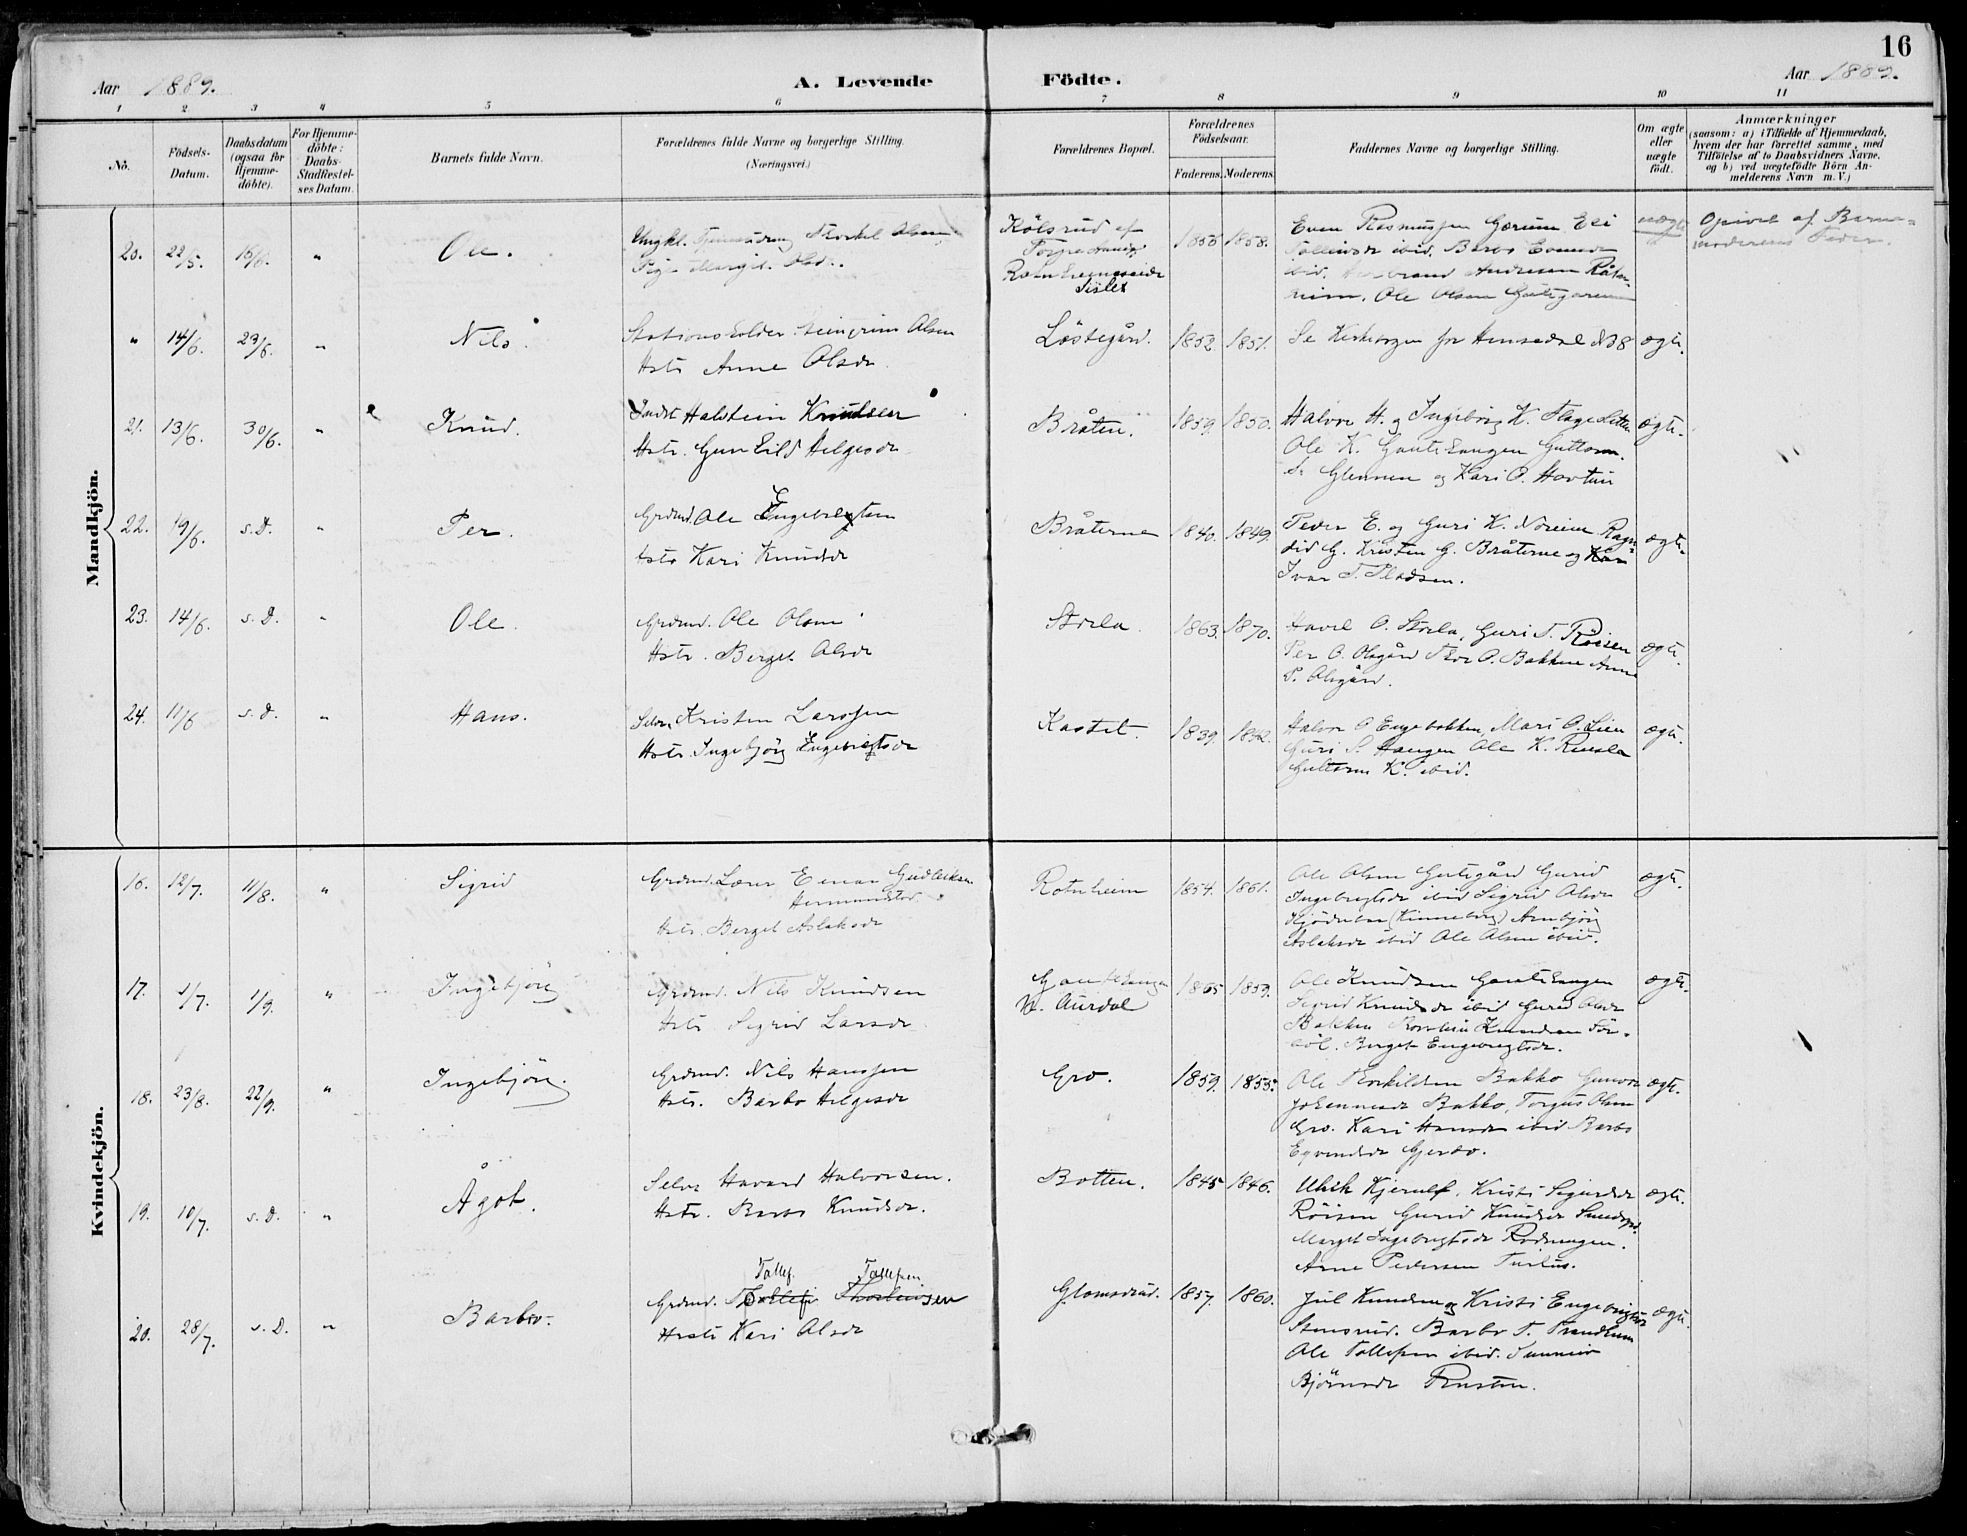 16
Aar 1889.
A. Levende Födte.
Aar 1889.
1 2 3 4 5 6 7 8 9 10 11
Nö.
Födsels-Datum.
Daabsdatum (ogsaa for Hjemme-döbte).
For Hjemme-döbte: Daabs-Stadfestel-ses Datum.
Barnets fulde Navn.
Forældrenes fulde Navne og borgerlige Stilling.
(Næringsvei.)
Forældrenes Bopæl.
Forældrenes Födselsaar.
Faderens. Moderens.
Faddernes Navne og borgerlige Stilling.
Om ægte eller uægte födt.
Anmærkninger
(saasom: a) i Tilfælde af Hjemmedaab,
hvem der har forrettet samme, med
Tilföielse af to Daabsvidners Navne,
og b) ved uægtefödte Börn An-
melderens Navn m. V.)
Mandkjön.
20. 22/5. 16/6. " Ole.
Ungkl. Storkel Olsen
Pige Margit Olsdr.
Kölsrud af
Torpe
Sislet
1858.
Even Rasmussen Gørum Eli
ibid. Barbo Evensdr
ibid. Andresen
Ole Olsen
uægte
Opivet af Barne-
moderens Fader.
" 14/6. 23/6. " Nils.
Stationsholder Steingrim Olsen
Hstr Anne Olsdr.
Löstegård. 1852. 1851.
Se Kirkebogen for Hemsedal N 8 ægte.
21. 13/6. 30/6. " Knud.
Indst Halstein Knudsen
Hstr. Gunhild Helgesdr.
Bråten. 1859. 1850.
Halvor H. og Ingeborg K. Flagesetten
Ole K. Gautehaugen Guttorm
S. Glennen og Kari O. Havtun
ægte.
22. 19/6. s.D. " Per.
Grdmd. Ole Engebregtsen
Hstr Kari Knudsdr
Bråterne 1840. 1849.
Peder E. og Guri K. Noreim Ragn-
did G. Kristen G. Bråterne og
Ivar T. Pladsen.
ægte.
23. 14/6. s.D. " Ole.
Grdmd. Ole Olsen
Hstr. Berget Olsdr
Storla. 1863. 1870.
O. Storla, Guri T. Röisen
Per O. Olsgård Thor O. Bakken Anne
P. Olsgård.
ægte.
24. 11/6 s.D. " Hans.
Selve. Kristen Larssen
Hstr. Ingebjörg Engebrigtsdr
Kastet. 1839. 1852.
Halvor O. Engebakken, Mari O. Lien
Guri S. Haugen Ole K. Rusla
Guttorm K. ibid.
ægte.
Kvindekjön.
16. 12/7. 11/8. " Sigrid
Grdmd. Lærer Einar Gudleiksen
Hemmestad
Hstr. Berget Aslaksdr
Rotneheim 1854. 1861.
Ole Olsen Gutegård Gurid
Ingebregtsdr ibid Sigrid Olsdr
(Kinneberg) Arnbjörg
Aslaksdr ibid Ole Olsen ibid.
ægte.
17. 1/7. 1/9. " Ingebjörg
Grdmd. Nils Knudsen
Hstr. Sigrid Larsdr.
Gautehaugen
N. Aurdal
1865 1859.
Ole Knudsen Gautehaugen
Sigrid Knudsdr ibid Gurid Olsdr
Bakken Knudsen Sör-
böl. Berget Engebregtsdr.
ægte.
18. 23/8. 22/9. " Ingebjörg.
Grdmd. Nils Hanssen
Hstr. Barbo Helgesdr
Gro. 1859. 1853.
Ole Thorkildsen Bakko Gunvor
Johannesdr Bakko, Torgus Olsen
Gro. Kari Hansdr ibid Barbo
Eyvindsdr Gjerdo.
ægte.
19. 10/7. s.D. " Ågot.
Selve Havard Halvorsen.
Hstr. Barbo Knudsdr.
Botten. 1845 1846.
Ulrik Kjerulf, Kristi Sigurdsdr
Röisen Gurid Knudsdr
Marget Ingebregtsdr Rodningen.
Arne Pedersen
ægte.
20. 28/7. s.D. " Barbro.
Tollef. Tollefsen
Grdmd. Tollef Thorleivsen
Hstr Kari Olsdr
Glomsdrud. 1857. 1860.
Jul Knudsen og Kristi Engebrigtsdr
Stensrud. Barbo T. Trandhem
Ole Tollefsen ibid. Sunneiv
Björnsdr Rusten.
ægte.